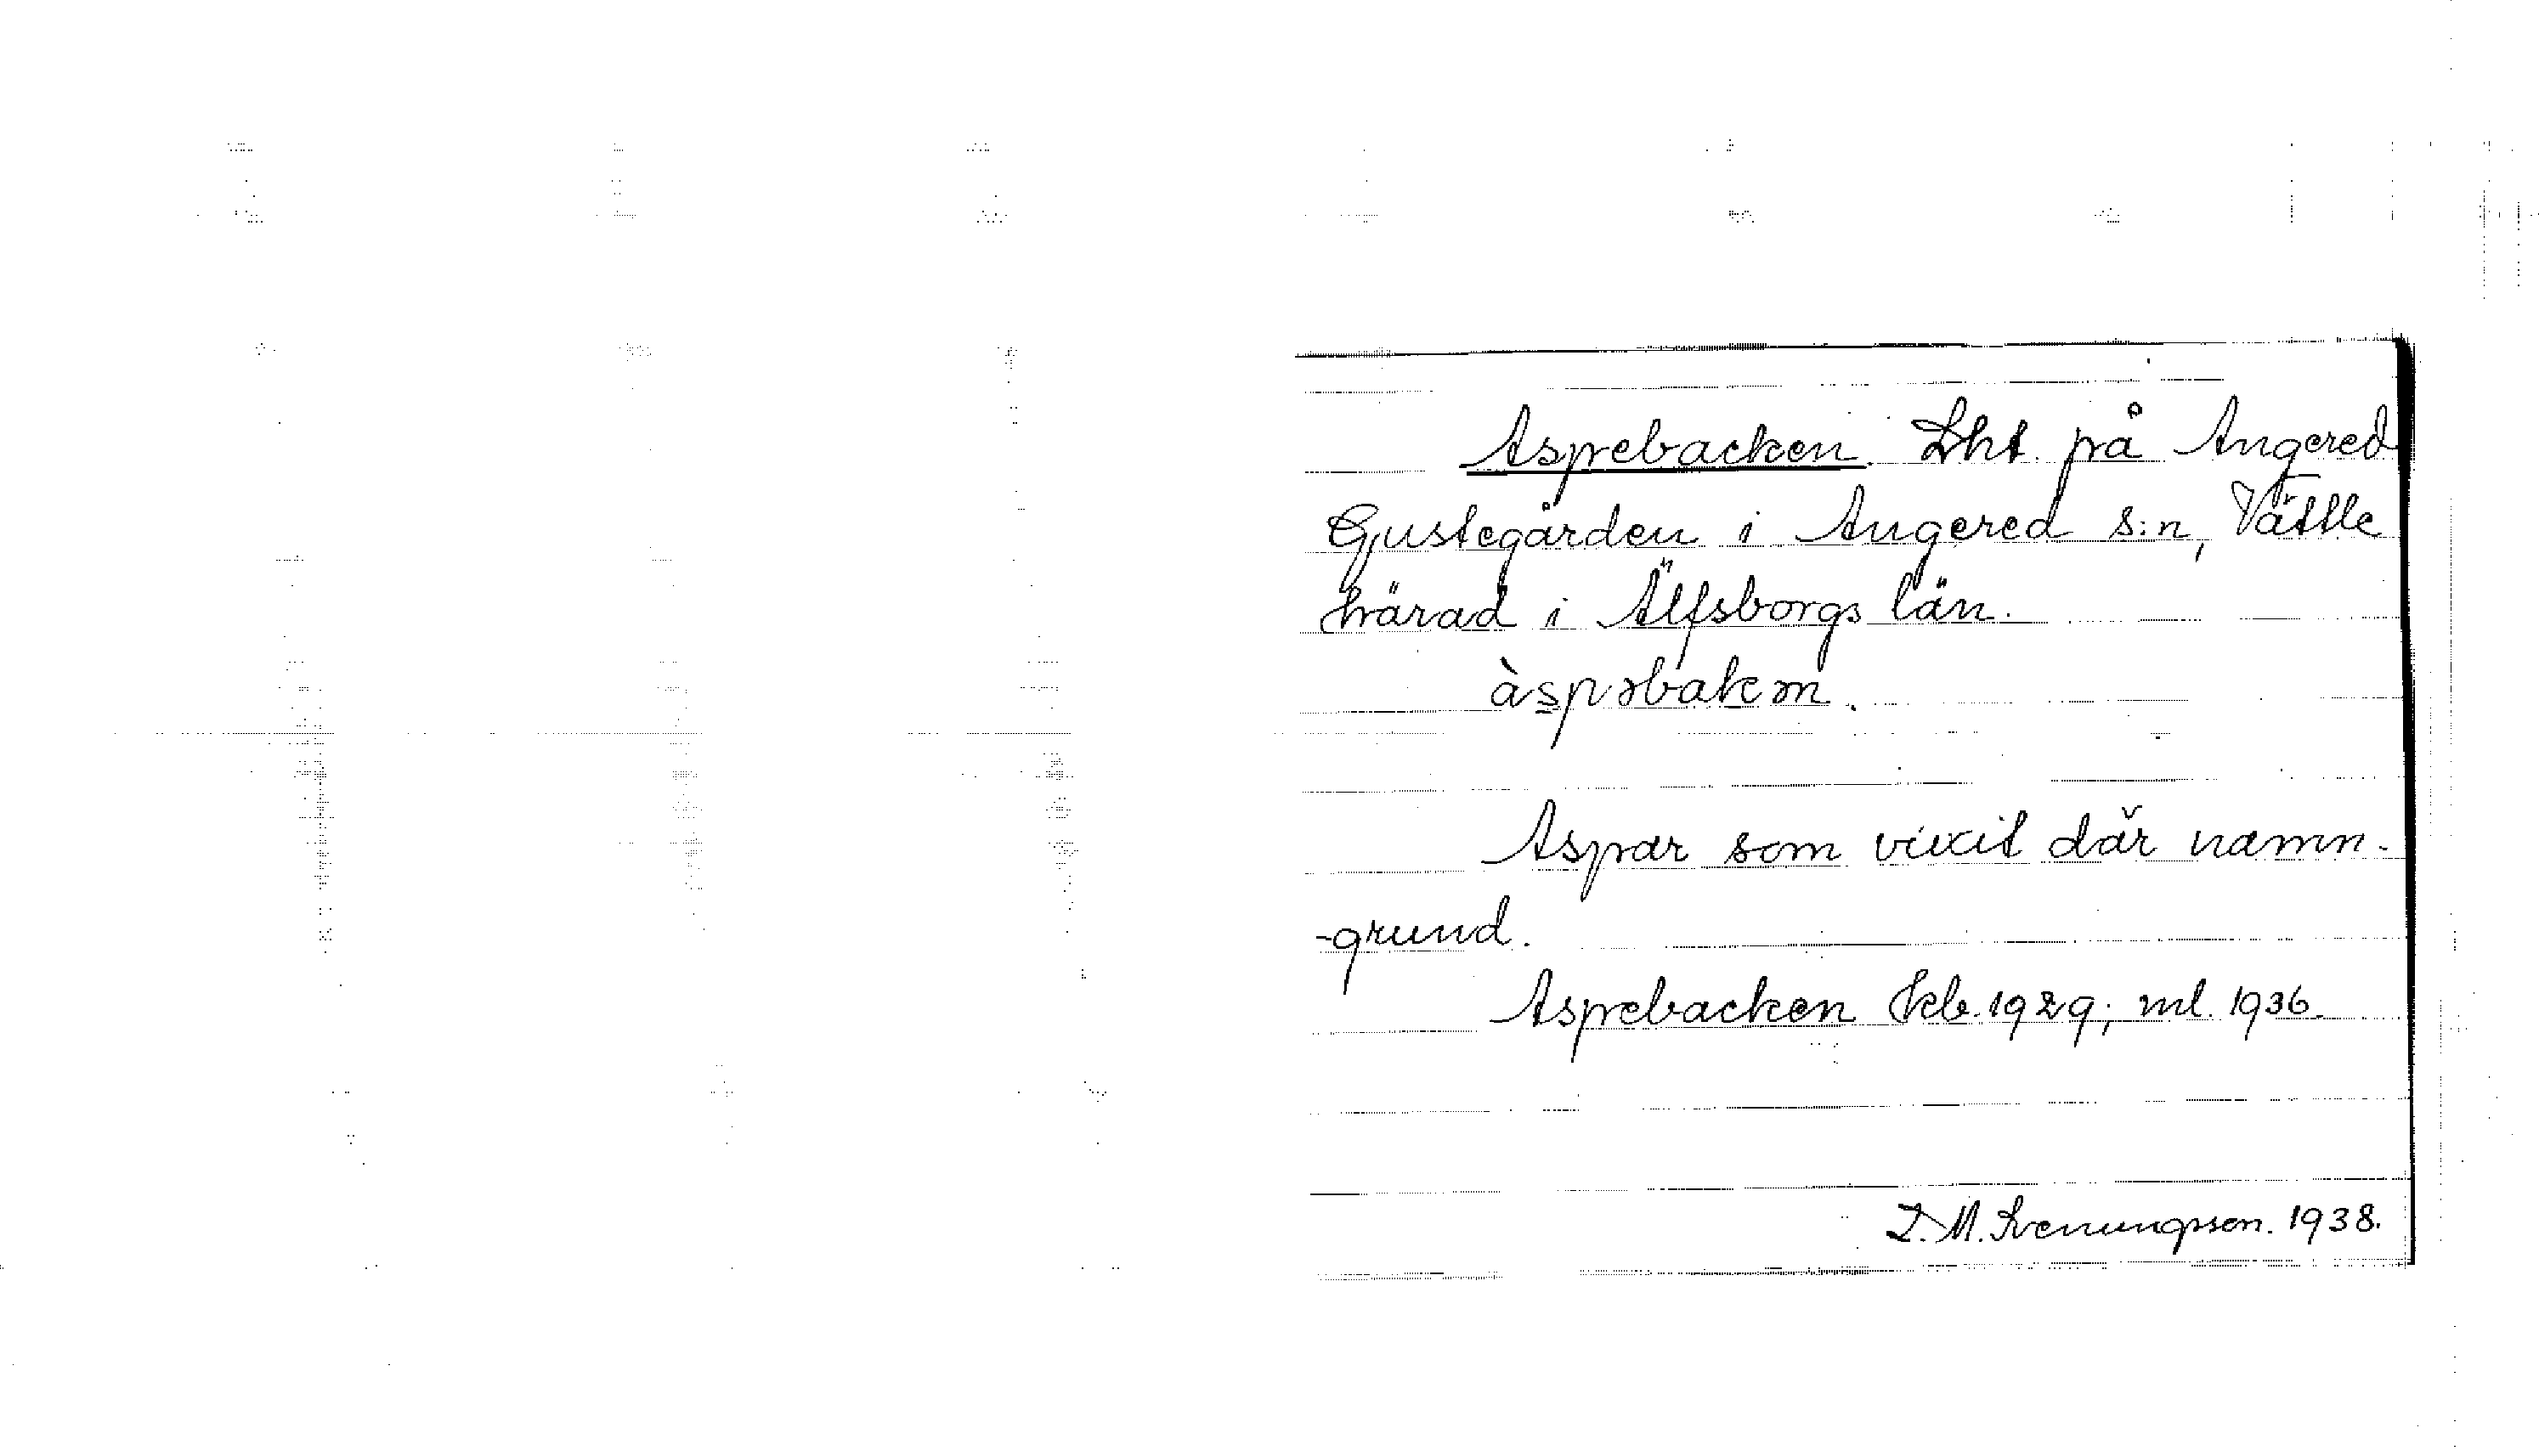 Aspebacken. Lht. på Angered
Gustegården i Angered s:n, Vättle
härad i Älfsborgs län.
àspəbakən.
Aspar som växit där namn-
-grund.
Aspebacken kb. 1929; ml. 1936.
1938.